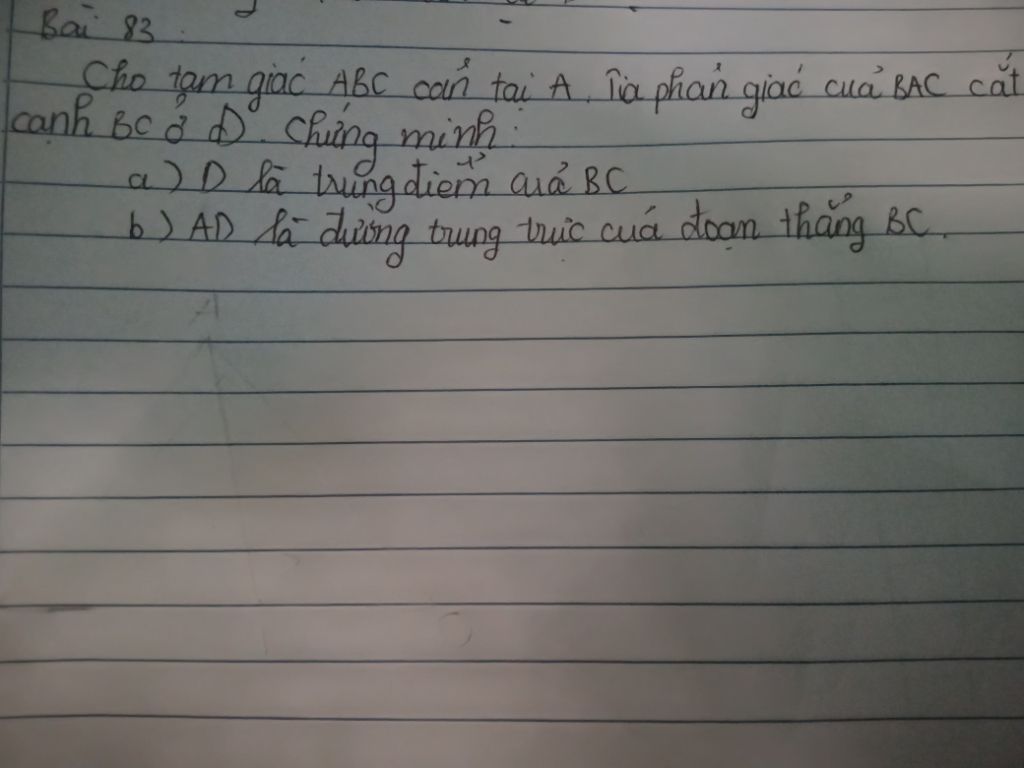 Bài 83:
Cho tam giác ABC cân tại A. Tia phân giác của BAC cắt
cạnh BC ở D. Chứng minh:
a) D là trung điểm của BC
b) AD là đường trung trực của đoạn thẳng BC.
A